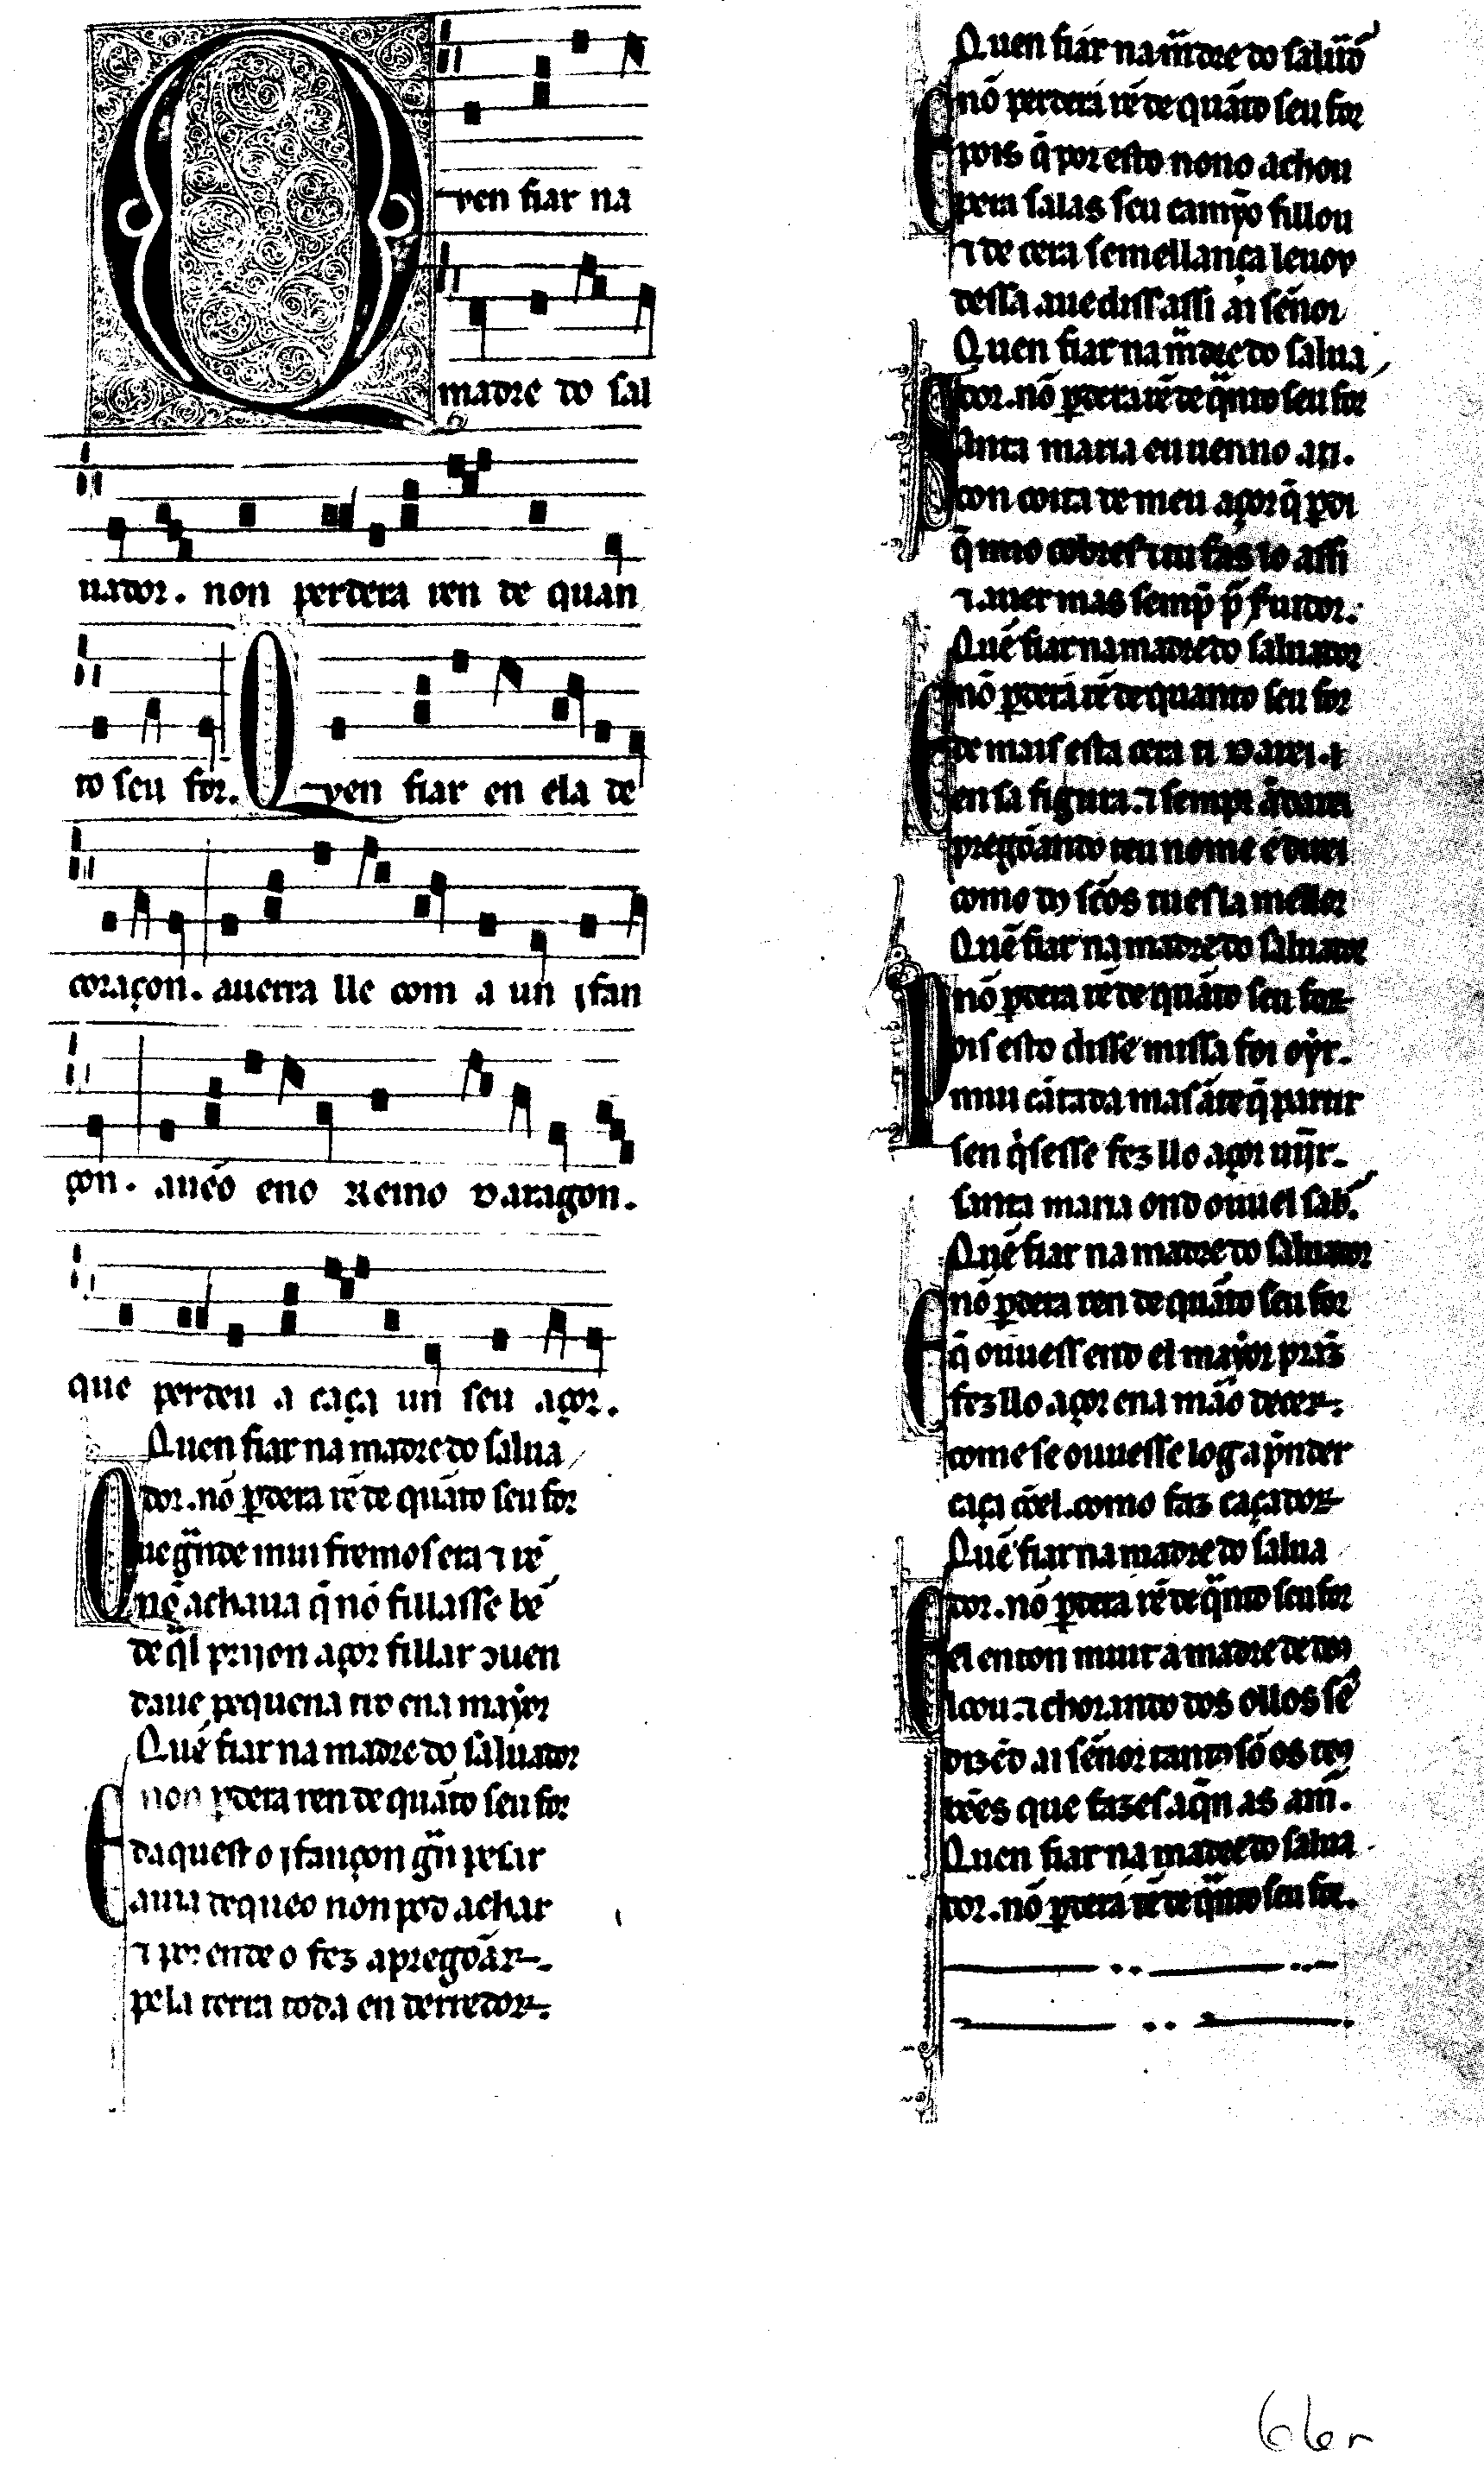 Quen fiar na
madre do sal
uador. non perdera ren de quan
to seu for. Quen fiar en ela de
coraçon. auerra lle com a un jfan
çon. aueõ eno Reino daragon.
que perdeu a caça un seu açor.
Quen fiar na madre do salua
dor. nõ ꝑdera rẽ de quãto seu for
Que gͣnde mui fremos era ⁊ rẽ
nẽ achaua q̃ nõ fillasse bẽ
de qͣl prijon açor fillar ↄuen
daue pequena tro ena mayor
Quẽ fiar na madre do saluador
non ꝑdera ren de quãto seu for
E daquest o jfançon gͣn pesar
auia de que o non pod achar
⁊ por ende o fez apregõar.
pela terra toda en derredor.
Quen fiar na mͣdre do saluͣdor
nõ perdera rẽ de quãto seu for
E pois q̃ por esto nono achou
pera salas seu camỹo fillou
⁊ de cera semellança leuou
dessa aue diss assi ai sẽnor
Quen fiar na mͣdre do salua
dor. nõ ꝑdera rẽ de qͣnto seu for
Santa maria eu uenno a ti.
con coita de meu açor q̃ ꝑdi
q̃ mio cobres ⁊ tu fas lo assi
⁊ auer mas semp̃ ꝑ seruidor.
Quẽ fiar na madre do saluador
nõ ꝑdera rẽ de quanto seu for
E de mais esta cera ti darei
en sa figura. ⁊ sempr ãdarei
pregõando teu nome e direi
como dos sc̃os tu es la mellor
Quẽ fiar na madre do saluador
nõ ꝑdera rẽ de quãto seu for
Pois esto disse missa foi oyr.
mui cãtada mas ãte q̃ partir
sen qͥsesse fez llo açor uĩjr.
santa maria ond ouuu el sab.
Quẽ fiar na madre do saluador
nõ ꝑdera ren de quãto seu for
E q̃ ouuess end el mayor praz
fez llo açor ena mão decer.
come se ouuesse log a p̃nder
caça cõ el. como faz caçador
Quẽ fiar na madre do salua
dor. nõ ꝑdera rẽ de qͣnto seu for
E el enton muit a madre de deus
loou. ⁊ chorando dos ollos sẽ
dizẽd ai sẽnor tantos sõ os teus
bẽes que fazes a q̃n as am̃.
Quen fiar na madre do salua
dor. nõ ꝑdera rẽ de qͣnto seu for.
66r